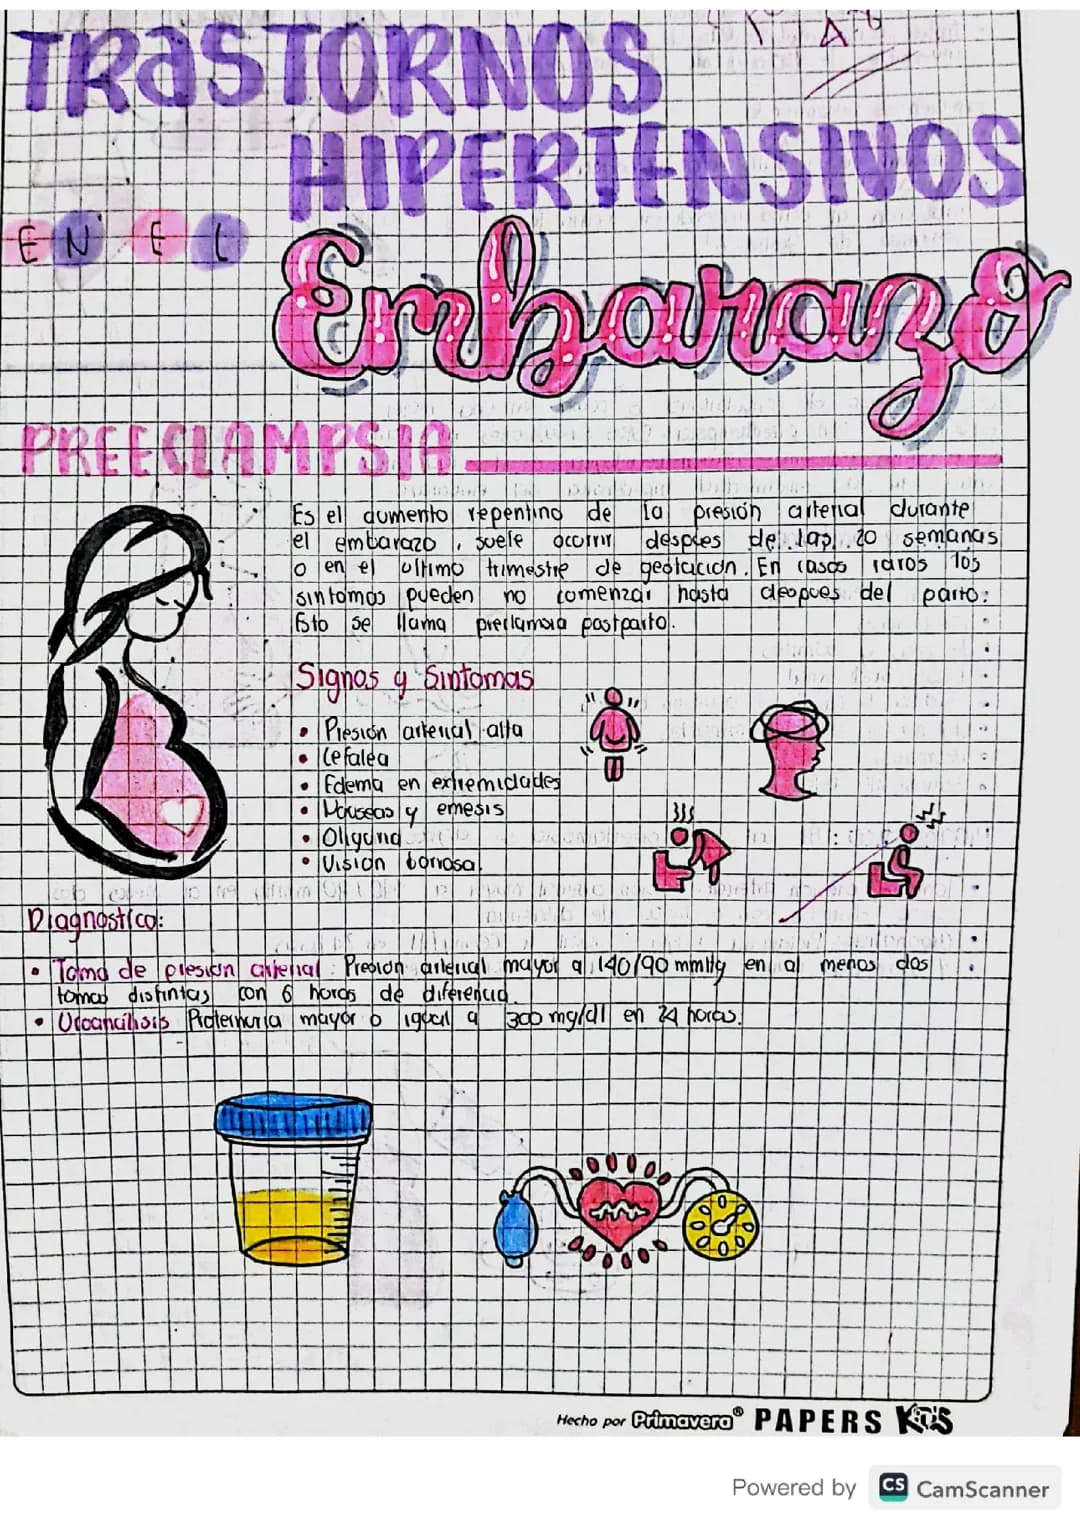 TRASTORNOS
HIPERTENSIVOS
EN EL
Embarazo
PREECLAMPSIA
Es el aumento repentino de la presión arterial durante
el embarazo, suele ocurrir despues de las 20 semanas
o en el ultimo trimestre de gestación. En casos raros los
sintomas pueden no comenzar hasta despues del parto.
Esto se llama preclamsia postparto.
Signos y Sintomas
• Presión arterial alta
• Cefalea
• Edema en extremidades
• Nauseas y emesis
• Oliguria
• Vision borrosa.
Diagnostico:
• Toma de presion arterial: Presion arterial mayor a 140/90 mmHg en al menos dos
tomas distintas con 6 horas de diferencia.
• Uroanálisis Proteinuria mayor o igual a 300 mg/dl en 24 horas.
Hecho por Primavera® PAPERS KIDS
Powered by CS CamScanner